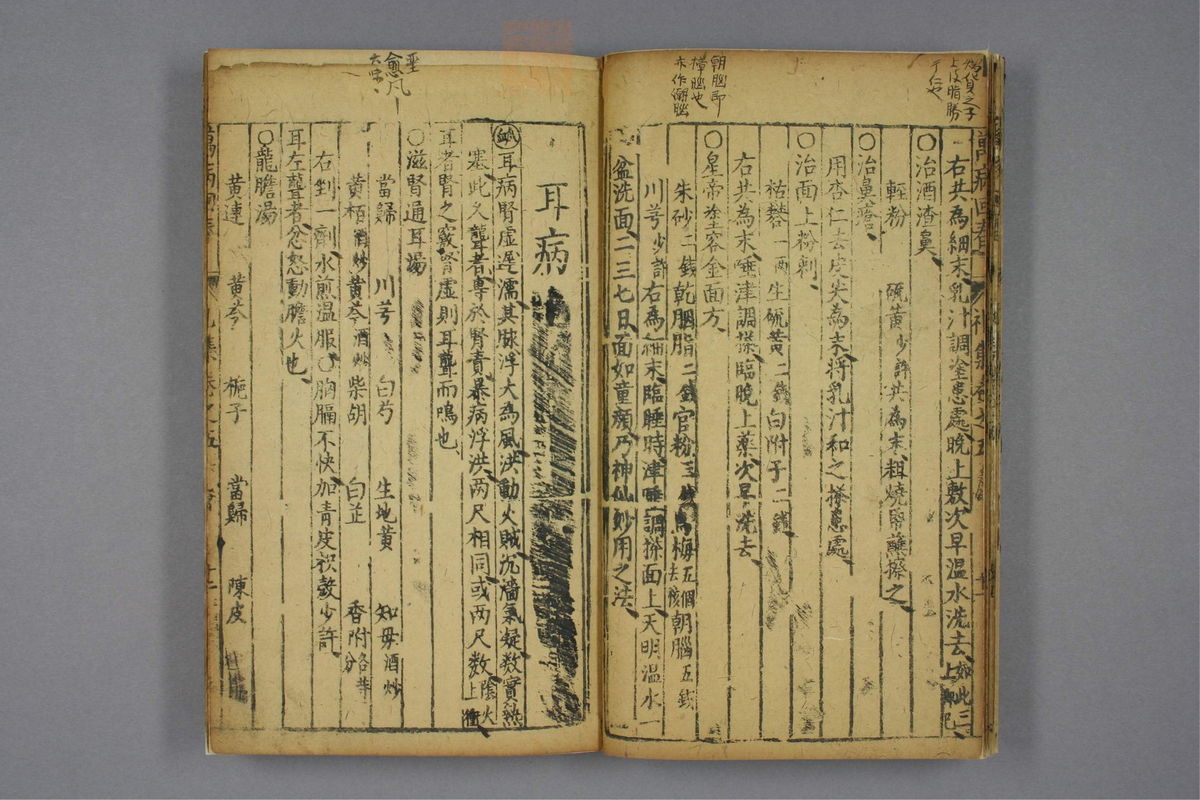 右共為細末乳汁調塗患處晚上敷次早溫水洗去如此三上
○治酒渣鼻
輕粉 硫黃少許共為末粗燒帋蘸擦之
治鼻瘡
用杏仁去皮尖為末將乳汁和之搽患處
治面上粉刺
枯礬一兩 生硫黃二錢 白附子二錢
右共為末唾津調搽臨晚上藥次早洗去
○皇帝塗容金面方
朱砂二錢 乾胭脂二錢 官粉三錢 烏梅五個去核 朝腦五錢
川芎少許 右為細末臨睡時津唾調搽面上天明溫水一
盆洗面二三七日面如童顏乃神仙妙用之法
朝腦即
樟腦也
亦作潮腦
耳病
耳病腎虛遲濡其脉浮大為風洪動火賊沉濇氣凝數實熱
塞此久聾者專於腎責暴病浮洪两尺相同或两尺數陰火上衝
耳者腎之竅腎虛則耳聾而鳴也
○滋腎通耳湯
當歸 川芎 白芍 生地黃 知毋酒炒
黃栢酒炒 黃芩酒炒 柴胡 白芷 香附各等分
右剉一劑水煎溫服○胸膈不快加青皮枳殼少許
耳左聾者忿怒動膽火也
○龍膽湯
黃連 黃芩 梔子 當歸 陳皮
愈风